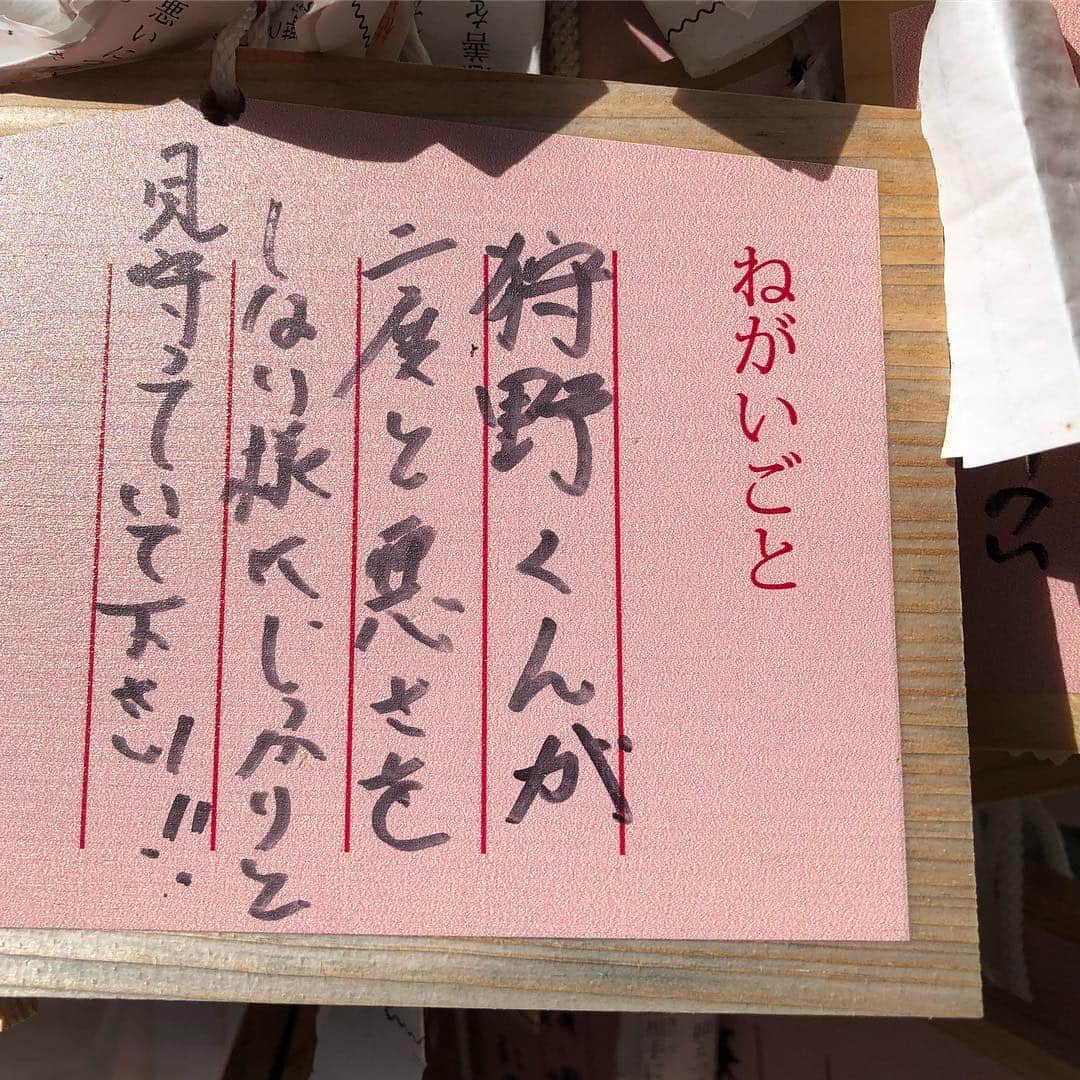 ねがいごと
狩野くんが
二度と悪さを
しなり様にしっかりと
見守っていて下さい!!